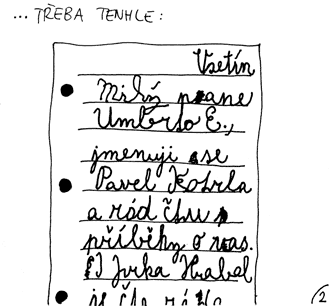 ... TŘEBA TENHLE:
Vsetín
Milý pane
Umberto E.,
jmenuji se
Pavel Kotrla
a rád čtu
příběhy o vas.
I Jirka Hrabal
je čte rád
2